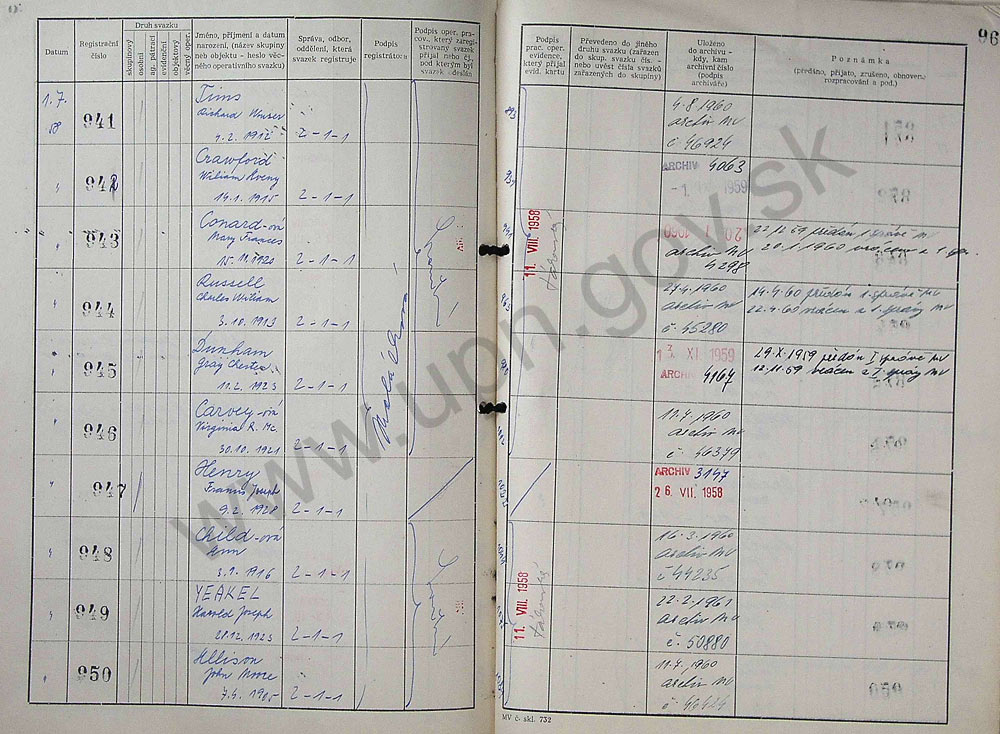 96
Datum
Registrační číslo
Druh svazku
skupinový
osobní
ag. pátrací
evidenční
objektový
věcný oper.
Jméno, příjmení a datum
narození, (název skupiny
neb objektu - heslo věc-
ného operativního svazku)
Správa, odbor,
oddělení, která
svazek registruje
Podpis
registrátora
Podpis oper. pra-
cov., který zareg-
istrovaný svazek
přijal nebo čj.,
pod kterým byl
svazek odeslán
Podpis
prac. oper.
evidence,
který přijal
evid. kartu
Převedeno do jiného
druhu svazku (zařazen
do skup. svazku čís. -
nebo uvést čísla svazků
zařazených do skupiny)
Uloženo
do archivu -
kdy, kam
archivní číslo
(podpis
archiváře)
Poznámka
(předáno, přijato, zrušeno, obnoveno
rozpracování a pod.)
1.7.
58
941
Tims
Richard
4.2. 1912 2-1-1
4.8.1960
archiv MV
č 46924
942
Crawford
William
14.1.1915 2-1-1
ARCHIV 4063
1959
943
Conard-ová
Mary Frances
15.11.1920 2-1-1
11. VIII. 1958
1960
archiv MV
4298
předán 1 správě MV
20.1.1960 vrácen z 1.
944
Russell
Charles William
3.10.1913 2-1-1
27.4.1960
archiv MV
č 45280
14.4.60 předán 1. správě MV
22.4.60 vrácen z 1. správy MV
945
Dunham
Gray Chester
11.2. 1923 2-1-1
13. XI. 1959
ARCHIV 4167
29.X.1959 předán I správě MV
12.11.59 vrácen z I. správy MV
946
Carvey-ová
Virginia R. Mc
30.10.1921 2-1-1
1960
archiv MV
č. 46379
947
Henry
Francis Joseph
9.2. 1928 2-1-1
ARCHIV 3147
26. VII. 1958
948
Child-ová
Ann
1916 2-1-1
16.3.1960
archiv MV
č 44235
949
YEAKEL
Harold Joseph
28.12.1923 2-1-1
11. VIII. 1958
22.2.1961
archiv MV
č. 50880
950
Allison
John More
7.4. 1905 2-1-1
11.7.1960
archiv MV
č 46424
MV č. skl. 732
www.upn.gov.sk